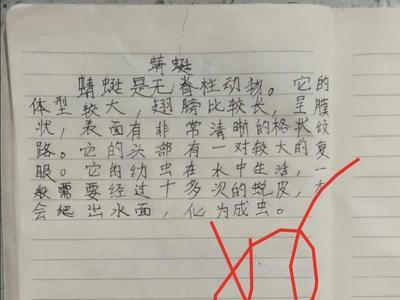 蜻蜓
蜻蜓是无脊柱动物。它的
体型较大，翅膀比较长，呈膜
状，表面有非常清晰的格状纹
路。它的头部有一对较大的复
眼。它的幼虫在水中生活，一
般需要经过十多次的蜕皮，才
会爬出水面，化为成虫。